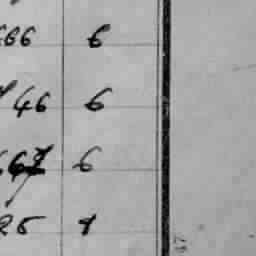 666 6
46 6
67 6
25 1